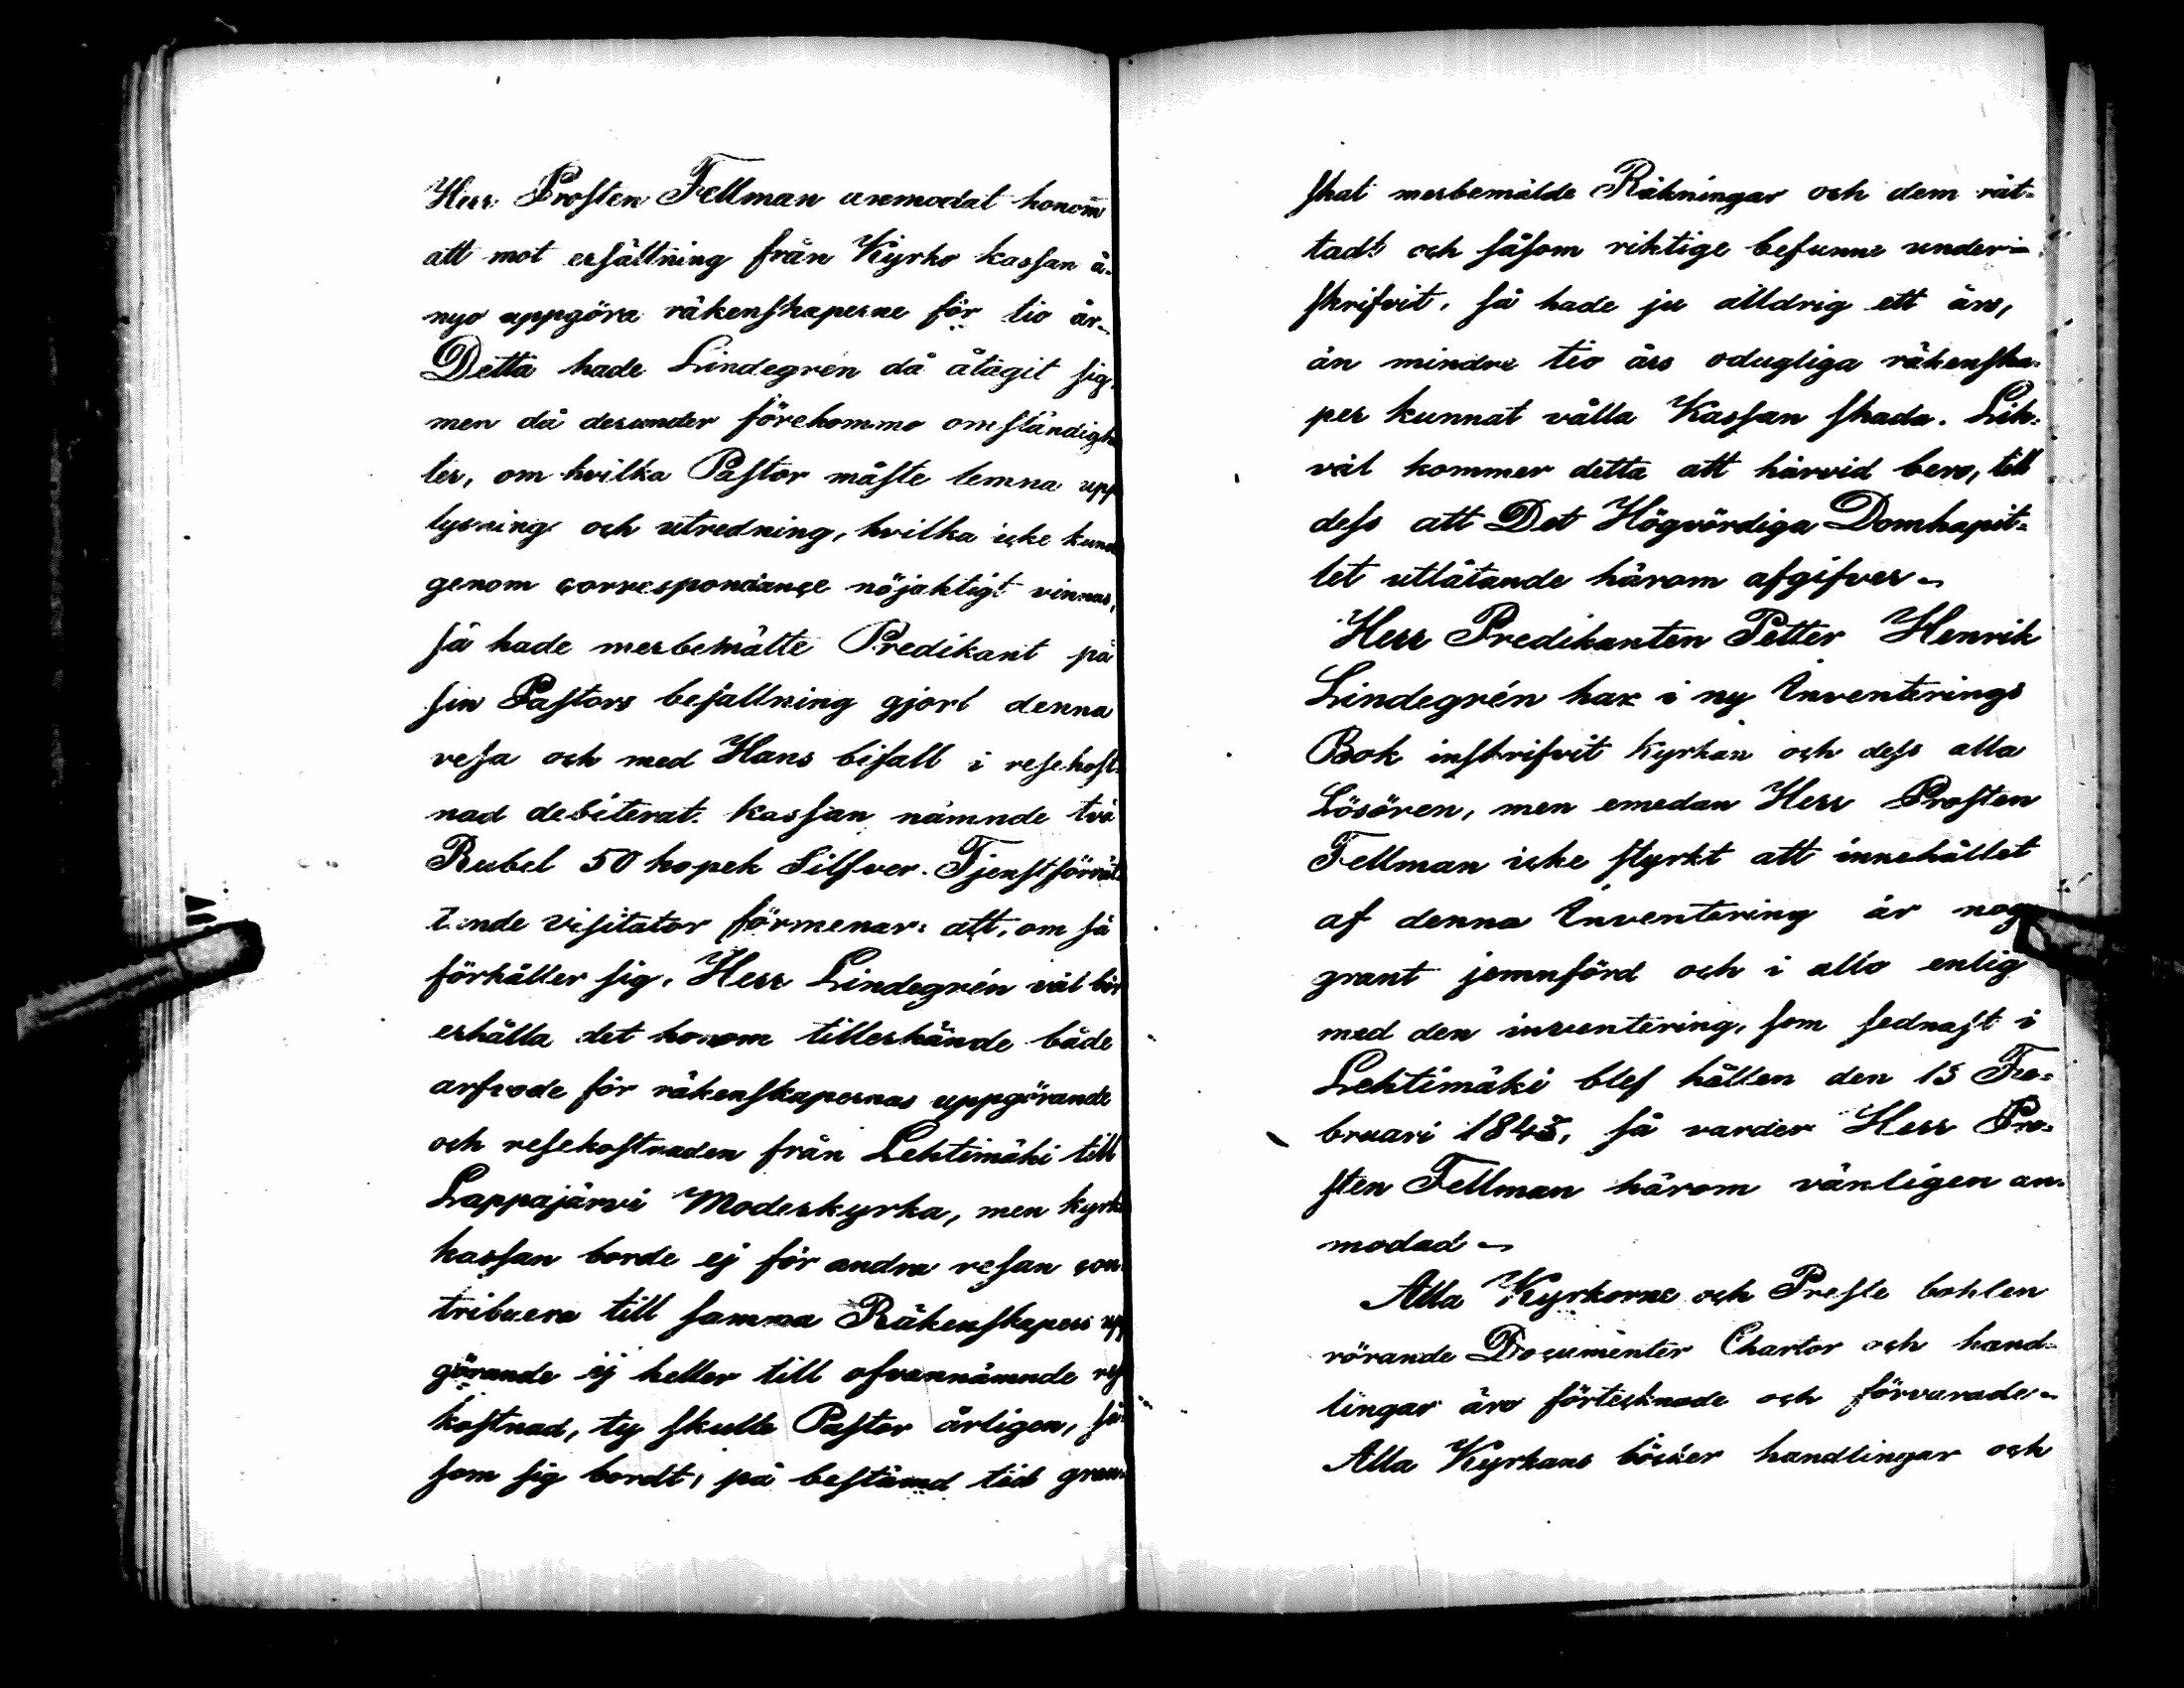 Herr Prosten Fellman anmodat honom
att mot ersättning från Kyrko kassan å-
nyo uppgöra räkenskaperne för tio år.
Detta hade Lindegren då åtagit sig,
men då derunder förekommo omständighe
ter, om hvilka Pastor måste lemna upp
lysning och utredning, hvilka icke kunde
genom correspondance nöjaktigt vinnas,
så hade merbemälte Predikant på
sin Pastors befallning gjort denna
resa och med Hans bifall i resekost-
nad debiterat kassan nämnde två
Rubel 50 kopek Silfver. Tjenstförrät
tande visitator förmenar: att, om så
förhåller sig, Herr Lindegrén väl bör
erhålla det honom tillerkände både
arfvode för räkenskapernas uppgörande
och resekostnaden från Lehtimäki till
Lappajärvi Moderkyrka, men kyrko
kassan borde ej för andra resan con-
tribuera till samma Räkenskapers upp
görande ej heller till ofvannämnde rese
kostnad, ty skulle Pastor årligen, så-
som sig bordt, på bestämd tid gran-
skat merbemälde Räkningar och dem rät-
tadt och såsom riktige befunne under-
skrifvit, så hade ju alldrig ett års,
än mindre tio års odugliga räkenska-
per kunnat vålla Kassan skada. Lik-
väl kommer detta att härvid bero, till
dess att Det Högvördiga Domkapit-
let utlåtande härom afgifver.
Herr Predikanten Petter Henrik
Lindegrén har i ny Inventerings
Bok inskrifvit kyrkan och dess alla
Lösören, men emedan Herr Prosten
Fellman icke styrkt att innehållet
af denna Inventering är nog
grant jemnförd och i allo enlig
med den inventering, som sednast i
Lehtimäki blef hållen den 15 Fe-
bruari 1843, så varder Herr Pro-
sten Fellman härom vänligen an-
modad
Alla Kyrkorne och Preste bohlen
rörande Documenter Chartor och hand-
lingar äro förtecknade och förvarade.
Alla Kyrkans böcker handlingar och